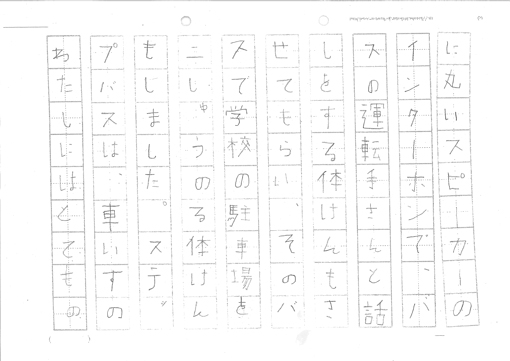 に丸いスピーカーの
インターホンで、バ
スの運転手さんと話
しをする体けんもさ
せてもらい、そのバ
スで学校の駐車場を
二しゅうのる体けん
もしました。ステッ
プバスは、車いすの
わたしにはとてもの